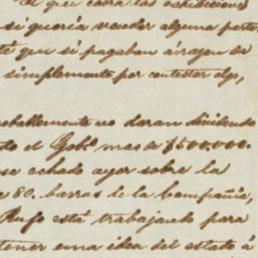 el que
si queria vender alguna
te que si pagaban á razon de
simplemente por contestar algo,
no daran dividendo
to el Gobo. mas de $500.000.
se echado ayer sobre la
e 80. barras de la Compañia,
Rufo está trabajando para
tener una idea del estado á